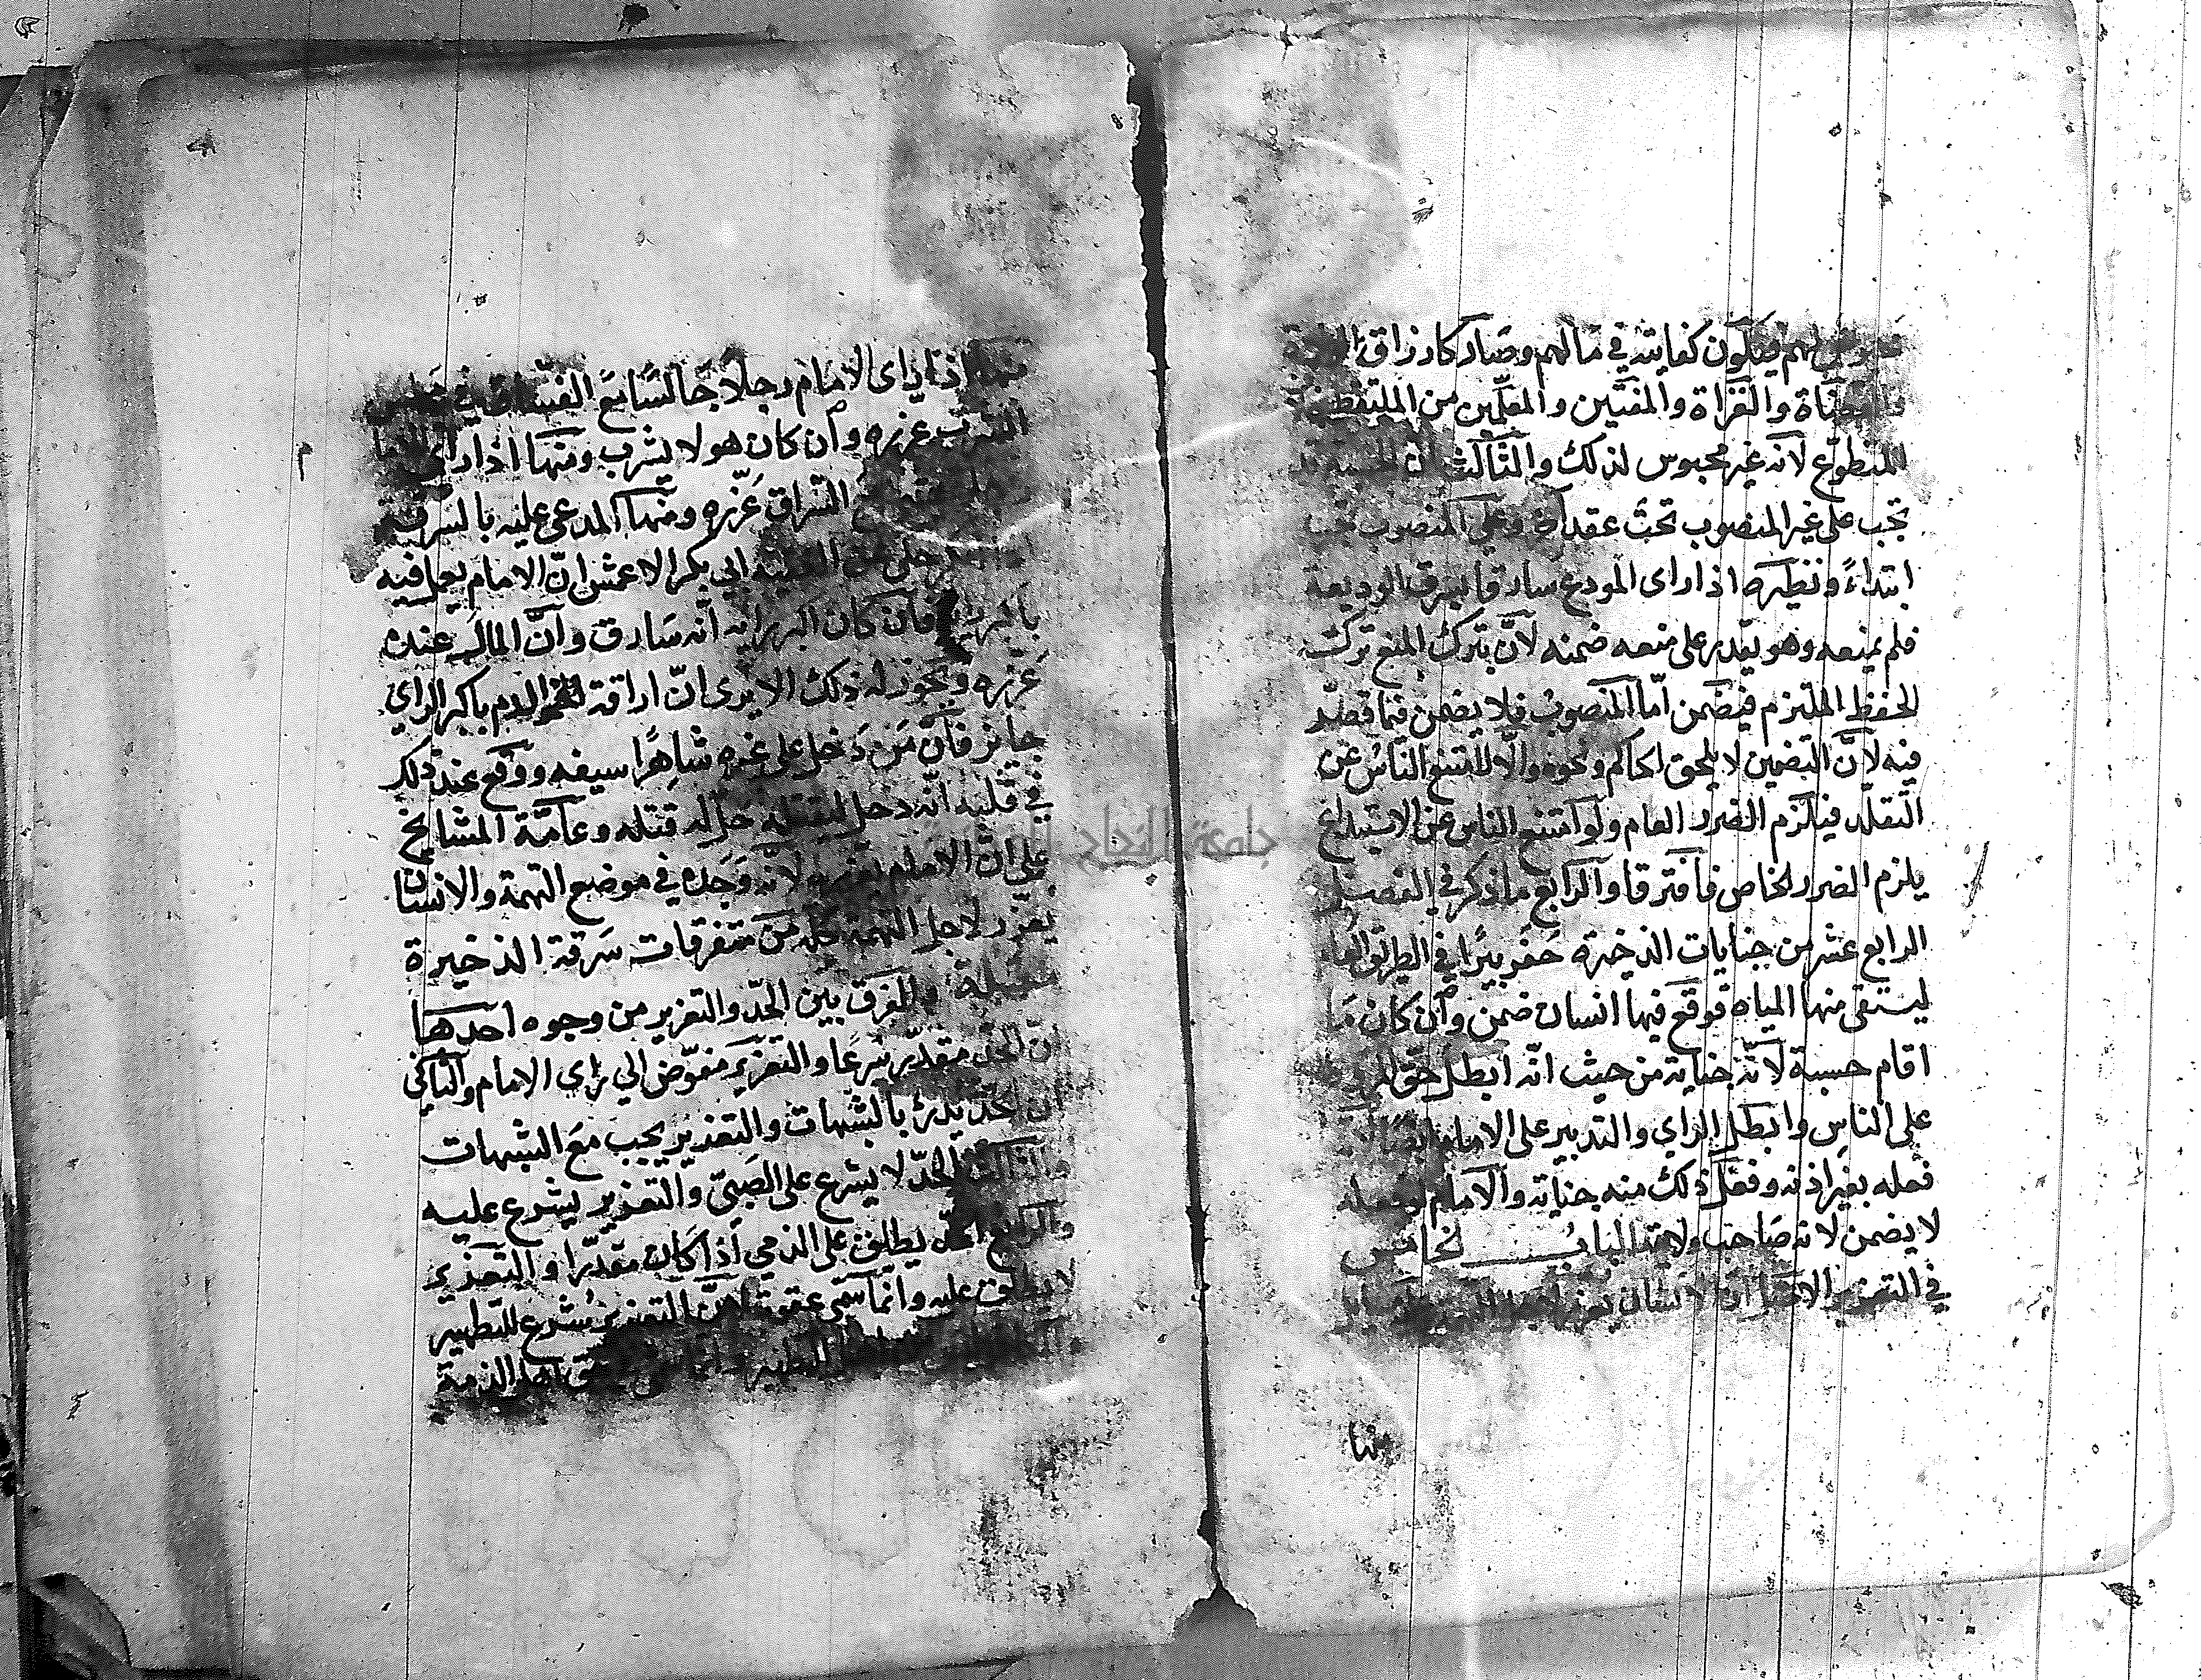 لهم فيكون كفايته في مالهم وصار كارزاق
والقضاة والغزاة والمفتين والمعلمين من الملتقط
المتطوع لانه غير محبوس لذلك والثالث ان الحسبة
تجب على غير المنصوب تحت عقد وعلى المنصوب تجب
ابتداءً ونظيره اذا راى المودع سارقا يسرق الوديعة
فلم يمنعه وهو يقدر على منعه ضمنه لانّ بترك المنع ترك
الحفظ الملتزم فيضمن امّا المنصوب فلا يضمن فيما قصّر
فيه لانّ التضمين لا يلحق الحاكم ونحوه والّا لامتنع الناس عن
التقلّد فيلزم الضرر العام ولو امتنع الناس عن الاستيداع
يلزم الضرر الخاص فافترقا والرابع ما ذكر في الفصل
الرابع عشر من جنايات الذخيرة حفر بيرًا في الطريق العام
ليستقى منها المياه فوقع فيها انسان ضمن وان كان ما
اقام حسبة لانّه جناية من حيث انّه ابطل حقّ
على الناس وابطل الراي والتدبير على الامام
فعله بغير اذنه وفعل ذلك منه جناية والامام لو فعله
لا يضمن لانه صاحب ولاية الباب الخامس
في التعزير الانسان
منها
منها اذا راى الامام رجلا جالسًا مع الفسّاق في مجلس
الشرب عزره وان كان هو لا يشرب ومنها اذا راى الامام
السّراق عزّره ومنها المدعى عليه بالسرقة
حكى عن الفقيه ابي بكر الاعمش انّ الامام يعمل فيه
باكبر فان كان اكبر رايه انّه سارق وانّ المال عنده
عزره ويجوز له ذلك الا يرى انّ اراقة الدم باكبر الراي
جايز فانّ من دخل على غيره شاهرًا سيفه ووقع عند ذلك
في قلبه انّه دخل ليقتله حلّ له قتله وعامّة المشايخ
على انّ الامام يعزره لانّه وجده في موضع التهمة والانسان
يعزر لاجل التهمة كلّه من متفرقات سرقة الذخيرة
والفرق بين الحدّ والتعزير من وجوه احدها
ان الحد مقدّر شرعًا والتعزير مفوّض الي راي الامام والثاني
ان الحدّ يدرئ بالشبهات والتعذير يجب مع الشبهات
والثالث الحدّ لا يشرع على الصبيّ والتعذير يشرع عليه
والرابع الحدّ يطلق على الذمي اذا كان مقدّرا والتعذير
لا يطلق عليه وانما سمّي عقوبة لانّ التعذير شرع للتطهير
التطهير حق اهل الذمة